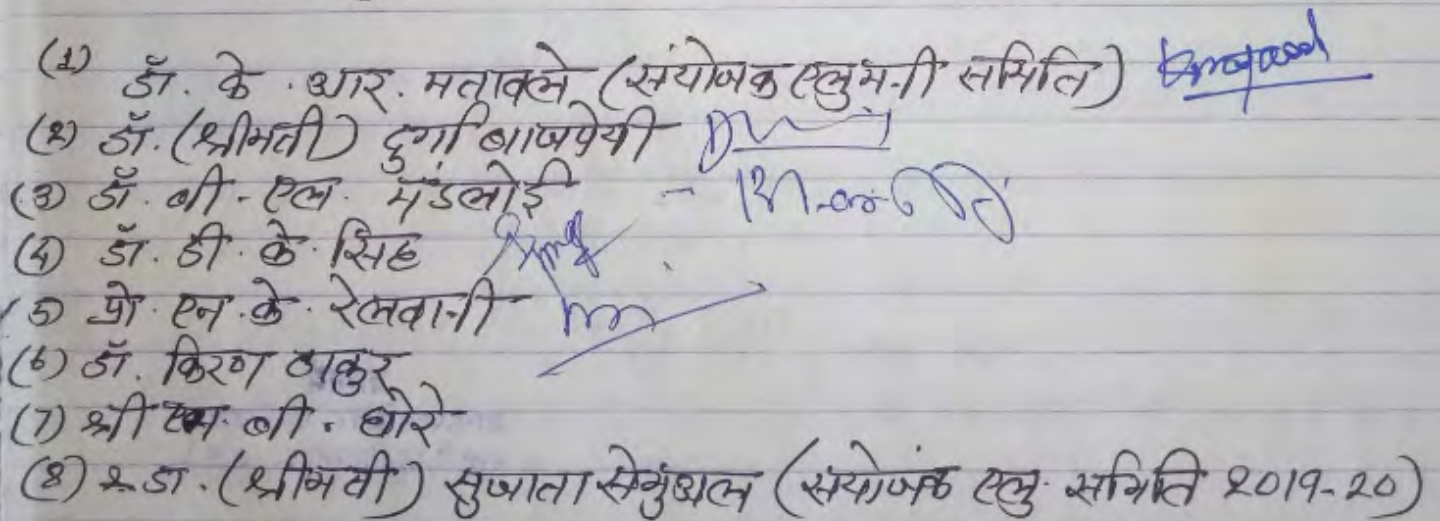 (1) डॉ. के. आर. मतावले (संयोजक एलुमनी समिति)
(2) डॉ. (श्रीमती) दुर्गा बाजपेयी
(3) डॉ. बी. एल. मंडलोई -
(4) डॉ. डी. के. सिंह
(5) प्रो. एन. के. रेलवानी
(6) डॉ. किरण ठाकुर
(7) श्री एम. बी. धोरे
(8) डा. (श्रीमती) सुजाता (संयोजक एलु. समिति 2019-20)